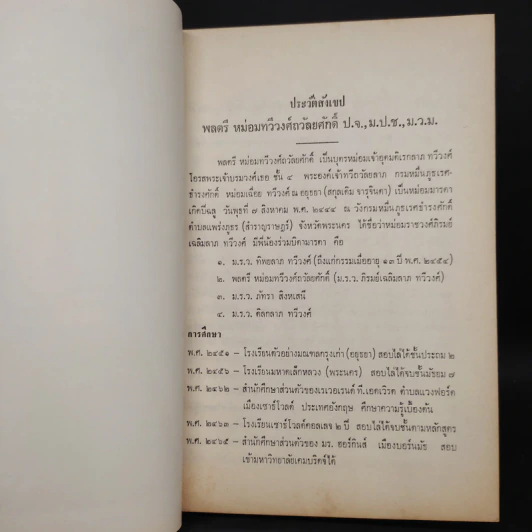 ประวัติสังเขป
พลตรี หม่อมทวีวงศ์ถวัลยศักดิ์ ป.จ.,ม.ป.ช.,ม.ว.ม.
พลตรี หม่อมทวีวงศ์ถวัลยศักดิ์ เป็นบุตรหม่อมเจ้าอุดมดิเรกลาภ ทวีวงศ์
โอรสพระเจ้าบรมวงศ์เธอ ชั้น ๔ พระองค์เจ้าทวีถวัลยลาภ กรมหมื่นภูธเรศ-
ธำรงศักดิ์ หม่อมเฉื่อย ทวีวงศ์ ณ อยุธยา (สกุลเดิม จารุจินดา) เป็นหม่อมมารดา
เกิดปีฉลู วันพุธที่ ๗ สิงหาคม พ.ศ. ๒๔๔๔ ณ วังกรมหมื่นภูธเรศธำรงศักดิ์
ตำบลแพร่งภูธร (สำราญราษฎร์) จังหวัดพระนคร ได้ชื่อว่าหม่อมราชวงศ์ภิรมย์
เฉลิมลาภ ทวีวงศ์ มีพี่น้องร่วมบิดามารดา คือ
๑. ม.ร.ว. ทิพยลาภ ทวีวงศ์ (ถึงแก่กรรมเมื่ออายุ ๑๓ ปี พ.ศ. ๒๔๕๔)
๒. พลตรี หม่อมทวีวงศ์ถวัลยศักดิ์ (ม.ร.ว. ภิรมย์เฉลิมลาภ ทวีวงศ์)
๓. ม.ร.ว. ภัทรา สิงหเสนี
๔. ม.ร.ว. ดิลกลาภ ทวีวงศ์
การศึกษา
พ.ศ. ๒๔๕๑ – โรงเรียนตัวอย่างมณฑลกรุงเก่า (อยุธยา) สอบไล่ได้ชั้นประถม ๒
พ.ศ. ๒๔๕๖ – โรงเรียนมหาดเล็กหลวง (พระนคร) สอบไล่ได้จบชั้นมัธยม ๗
พ.ศ. ๒๔๖๒ – สำนักศึกษาส่วนตัวของเรเวอเรนด์ ที. เอดเวิรด ตำบลแวงฟอร์ด
เมืองเซาธ์โวลด์ ประเทศอังกฤษ ศึกษาความรู้เบื้องต้น
พ.ศ. ๒๔๖๓ – โรงเรียนเซาธ์โวลด์คอลเลข ๒ ปี สอบไล่ได้จบชั้นตามหลักสูตร
พ.ศ. ๒๔๖๕ – สำนักศึกษาส่วนตัวของ มร. ฮอร์กินส์ เมืองบอร์นมัธ สอบ
เข้ามหาวิทยาลัยเคมบริดจ์ได้